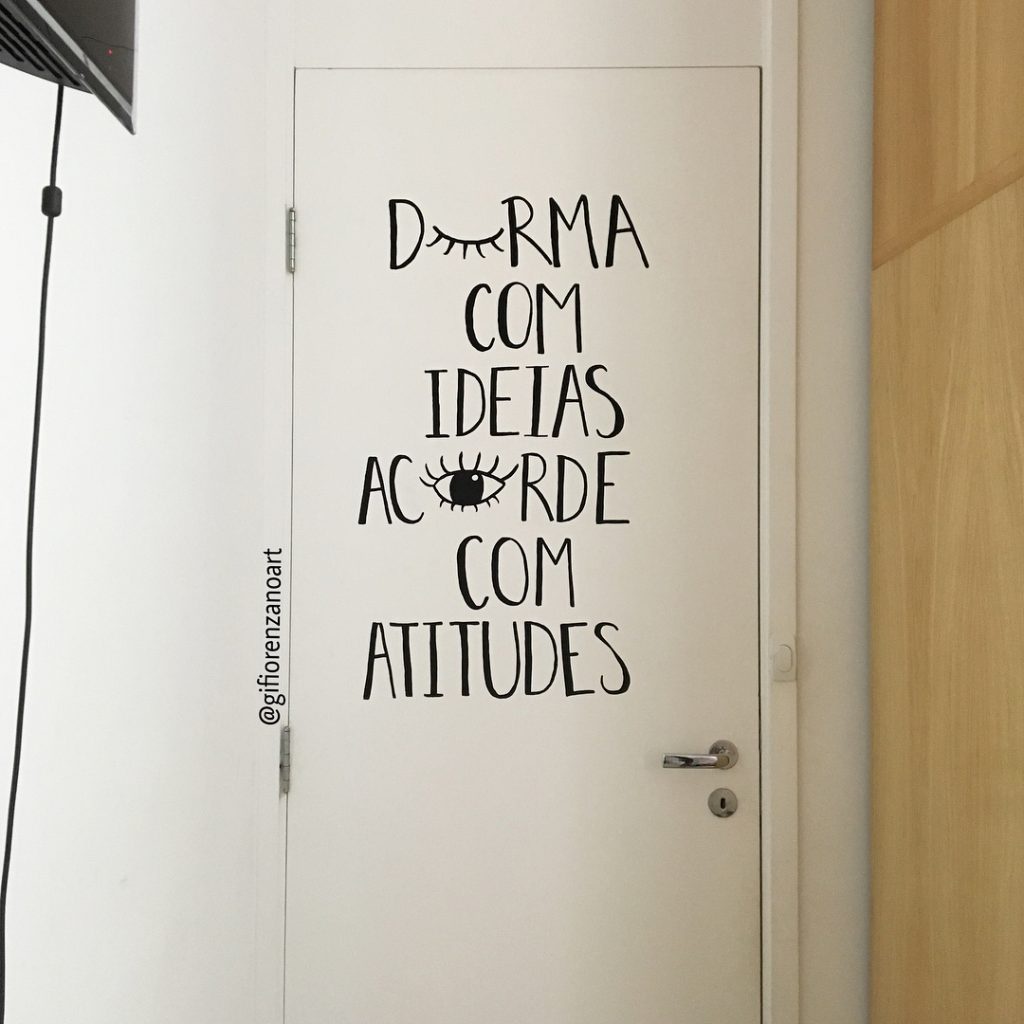 DORMA
COM
IDEIAS
ACORDE
COM
ATITUDES
@gifiorenzanoart